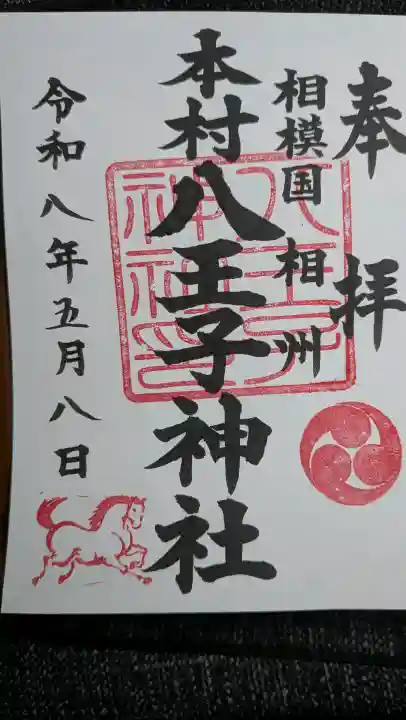 奉拝
相模国 相州
本村八王子神社
八王子神社印
令和八年五月八日